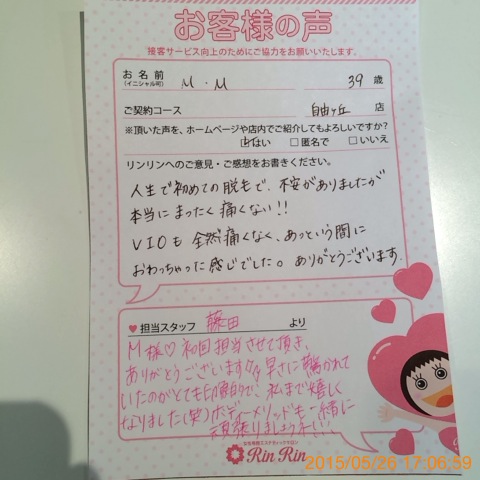 お客様の声
接客サービス向上のためにご協力をお願いいたします。
お名前
(イニシャル可)
M・M 39 歳
ご契約コース 自由ヶ丘 店
※頂いた声を、ホームページや店内でご紹介してもよろしいですか?
☑はい □匿名で □いいえ
リンリンへのご意見・ご感想をお書きください。
人生で初めての脱毛で、不安がありましたが
本当にまったく痛くない!!
VIOも全然痛くなく、あっという間に
おわっちゃった感じでした。ありがとうございます。
♥担当スタッフ 藤田 より
M様♡初回担当させて頂き、
ありがとうございます 早さに驚かれて
いたのがとても印象的で、私まで嬉しく
なりました(笑)ボディーメソッドも一緒に
頑張りましょうネい!!
女性専用エステティックサロン
Rin Rin
2015/05/26 17:06:59